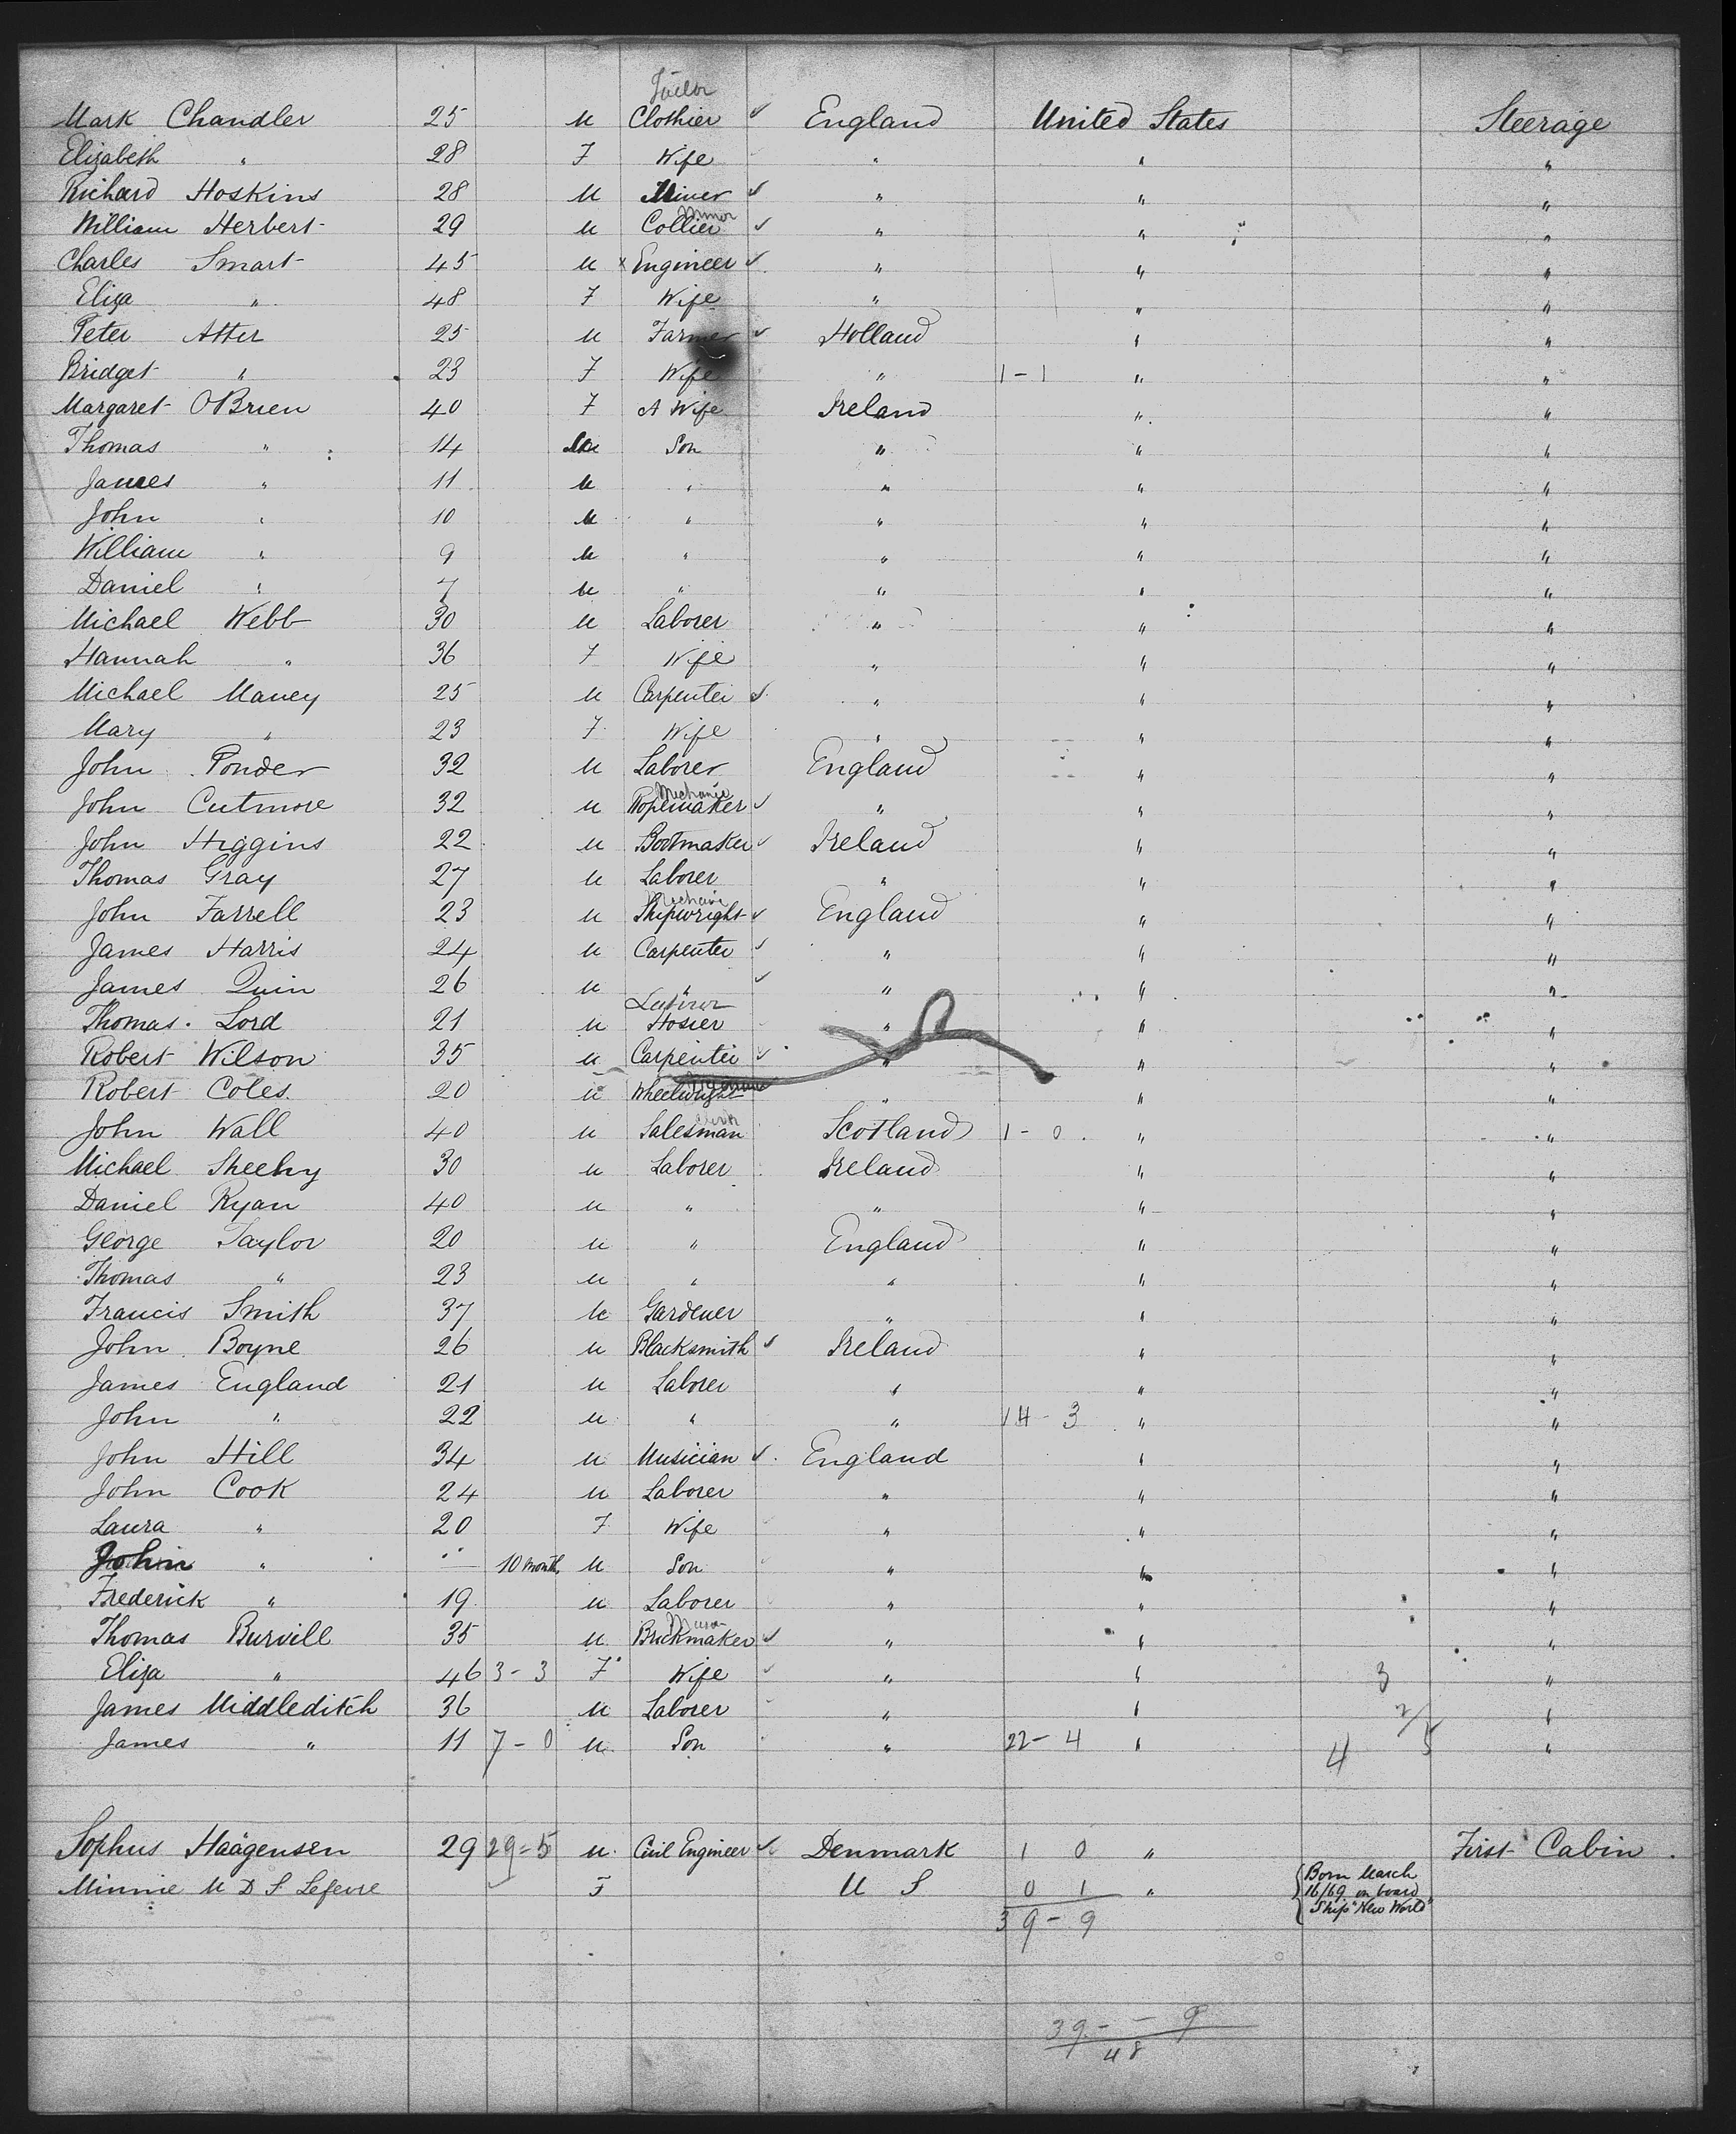 Tailor
Mark Chandler 25 M Clothier ✓ England United States Steerage
Elizabeth " 28 F Wife " " "
Richard Hoskins 28 M Miner ✓ " " "
Minor
William Herbert 29 M Collier ✓ " " "
Charles Smart 45 M x Engineer ✓ " " "
Eliza " 48 F Wife " " "
Peter Atter 25 M Farmer ✓ Holland " "
Bridget " 23 F Wife " 1-1 " "
Margaret OBrien 40 F A Wife Ireland " "
Thomas " 14 M Son " " "
James " 11 M " " " "
John " 10 M " " " "
William " 9 M " " " "
Daniel " 7 M " " " "
Michael Webb 30 M Laborer " " "
Hannah " 36 F Wife " " "
Michael Maney 25 M Carpenter ✓ " " "
Mary " 23 F Wife " " "
John Ponder 32 M Laborer England " "
Mechanic
John Cutmore 32 M Ropemaker ✓ " " "
John Higgins 22 M Bootmaker ✓ Ireland " "
Thomas Gray 27 M Laborer " " "
Mechanic
John Farrell 23 M Shipwright ✓ England " "
James Harris 24 M Carpenter ✓ " " "
James Quin 26 M " ✓ " " "
Thomas Lord 21 M Hosier " " "
Robert Wilson 35 M Carpenter ✓ " " "
Robert Coles 20 M Wheelwright " " "
Clerk
John Wall 40 M Salesman Scotland 1-0 " "
Michael Sheehy 30 M Laborer Ireland " "
Daniel Ryan 40 M " " " "
George Taylor 20 M " England " "
Thomas " 23 M " " " "
Francis Smith 37 M Gardener " " "
John Boyne 26 M Blacksmith ✓ Ireland " "
James England 21 M Laborer " " "
John " 22 M " " 14-3 " "
John Hill 34 M Musician ✓ England " "
John Cook 24 M Laborer " " "
Laura " 20 F Wife " " "
John " 10 month M Son " " "
Frederick " 19 M Laborer " " "
Thomas Burvill 35 M Brickmaker ✓ " " "
Eliza " 46 3-3 F Wife " " 3 "
James Middleditch 36 M Laborer " " "
James " 11 7-0 M Son " 22-4 " 4 "
Sophus Haägensen 29 29-5 M Civil Engineer ✓ Denmark 1 0 " First Cabin
Minnie M D S Lefevre F U S 0 1 " Born March
16/69 on board
Ship "New World"
39-9
39 - - 9
48